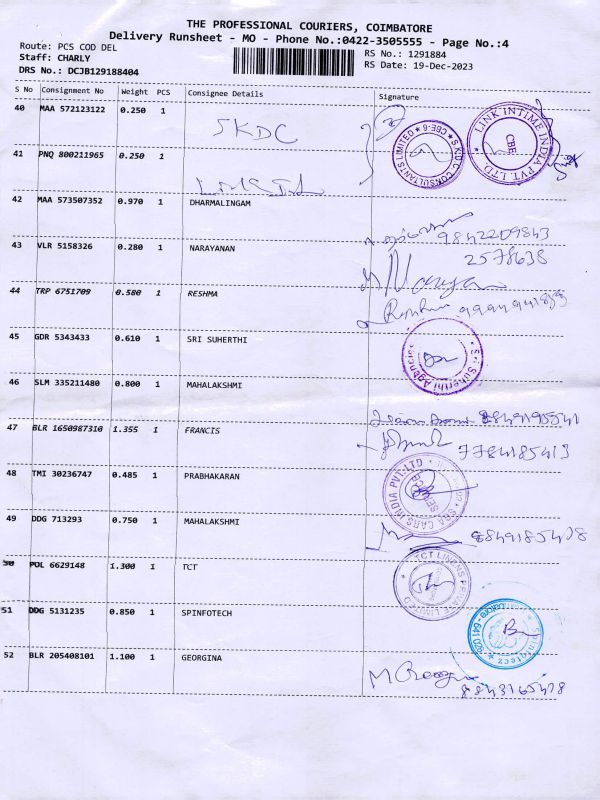 THE PROFESSIONAL COURIERS, COIMBATORE
Delivery Runsheet - MO - Phone No.:0422-3505555 - Page No.:4
Route: PCS COD DEL
RS No.: 1291884
Staff: CHARLY
RS Date: 19-Dec-2023
DRS No.: DCJB129188404
S No Consignment No Weight PCS Consignee Details Signature
40 MAA 572123122 0.250 1 SKDC
S.K.D.C. CONSULTANTS LIMITED ★ CBE-6 ★
LINK INTIME INDIA PVT. LTD. CBE
41 PNQ 800211965 0.250 1
42 MAA 573507352 0.970 1 DHARMALINGAM
9842209843
43 VLR 5158326 0.280 1 NARAYANAN
2578638
44 TRP 6751709 0.580 1 RESHMA
45 GDR 5343433 0.610 1 SRI SUHERTHI
Sri Suherthi Agencies
46 SLM 335211480 0.800 1 MAHALAKSHMI
47 BLR 1650987310 1.355 1 FRANCIS
7784185413
48 TMI 30236747 0.485 1 PRABHAKARAN
CARS INDIA PVT-LTD
49 DDG 713293 0.750 1 MAHALAKSHMI
50 POL 6629148 1.300 1 TCT
TCT LINENS PRIVATE LIMITED
51 DDG 5131235 0.850 1 SPINFOTECH
52 BLR 205408101 1.100 1 GEORGINA
8843165478